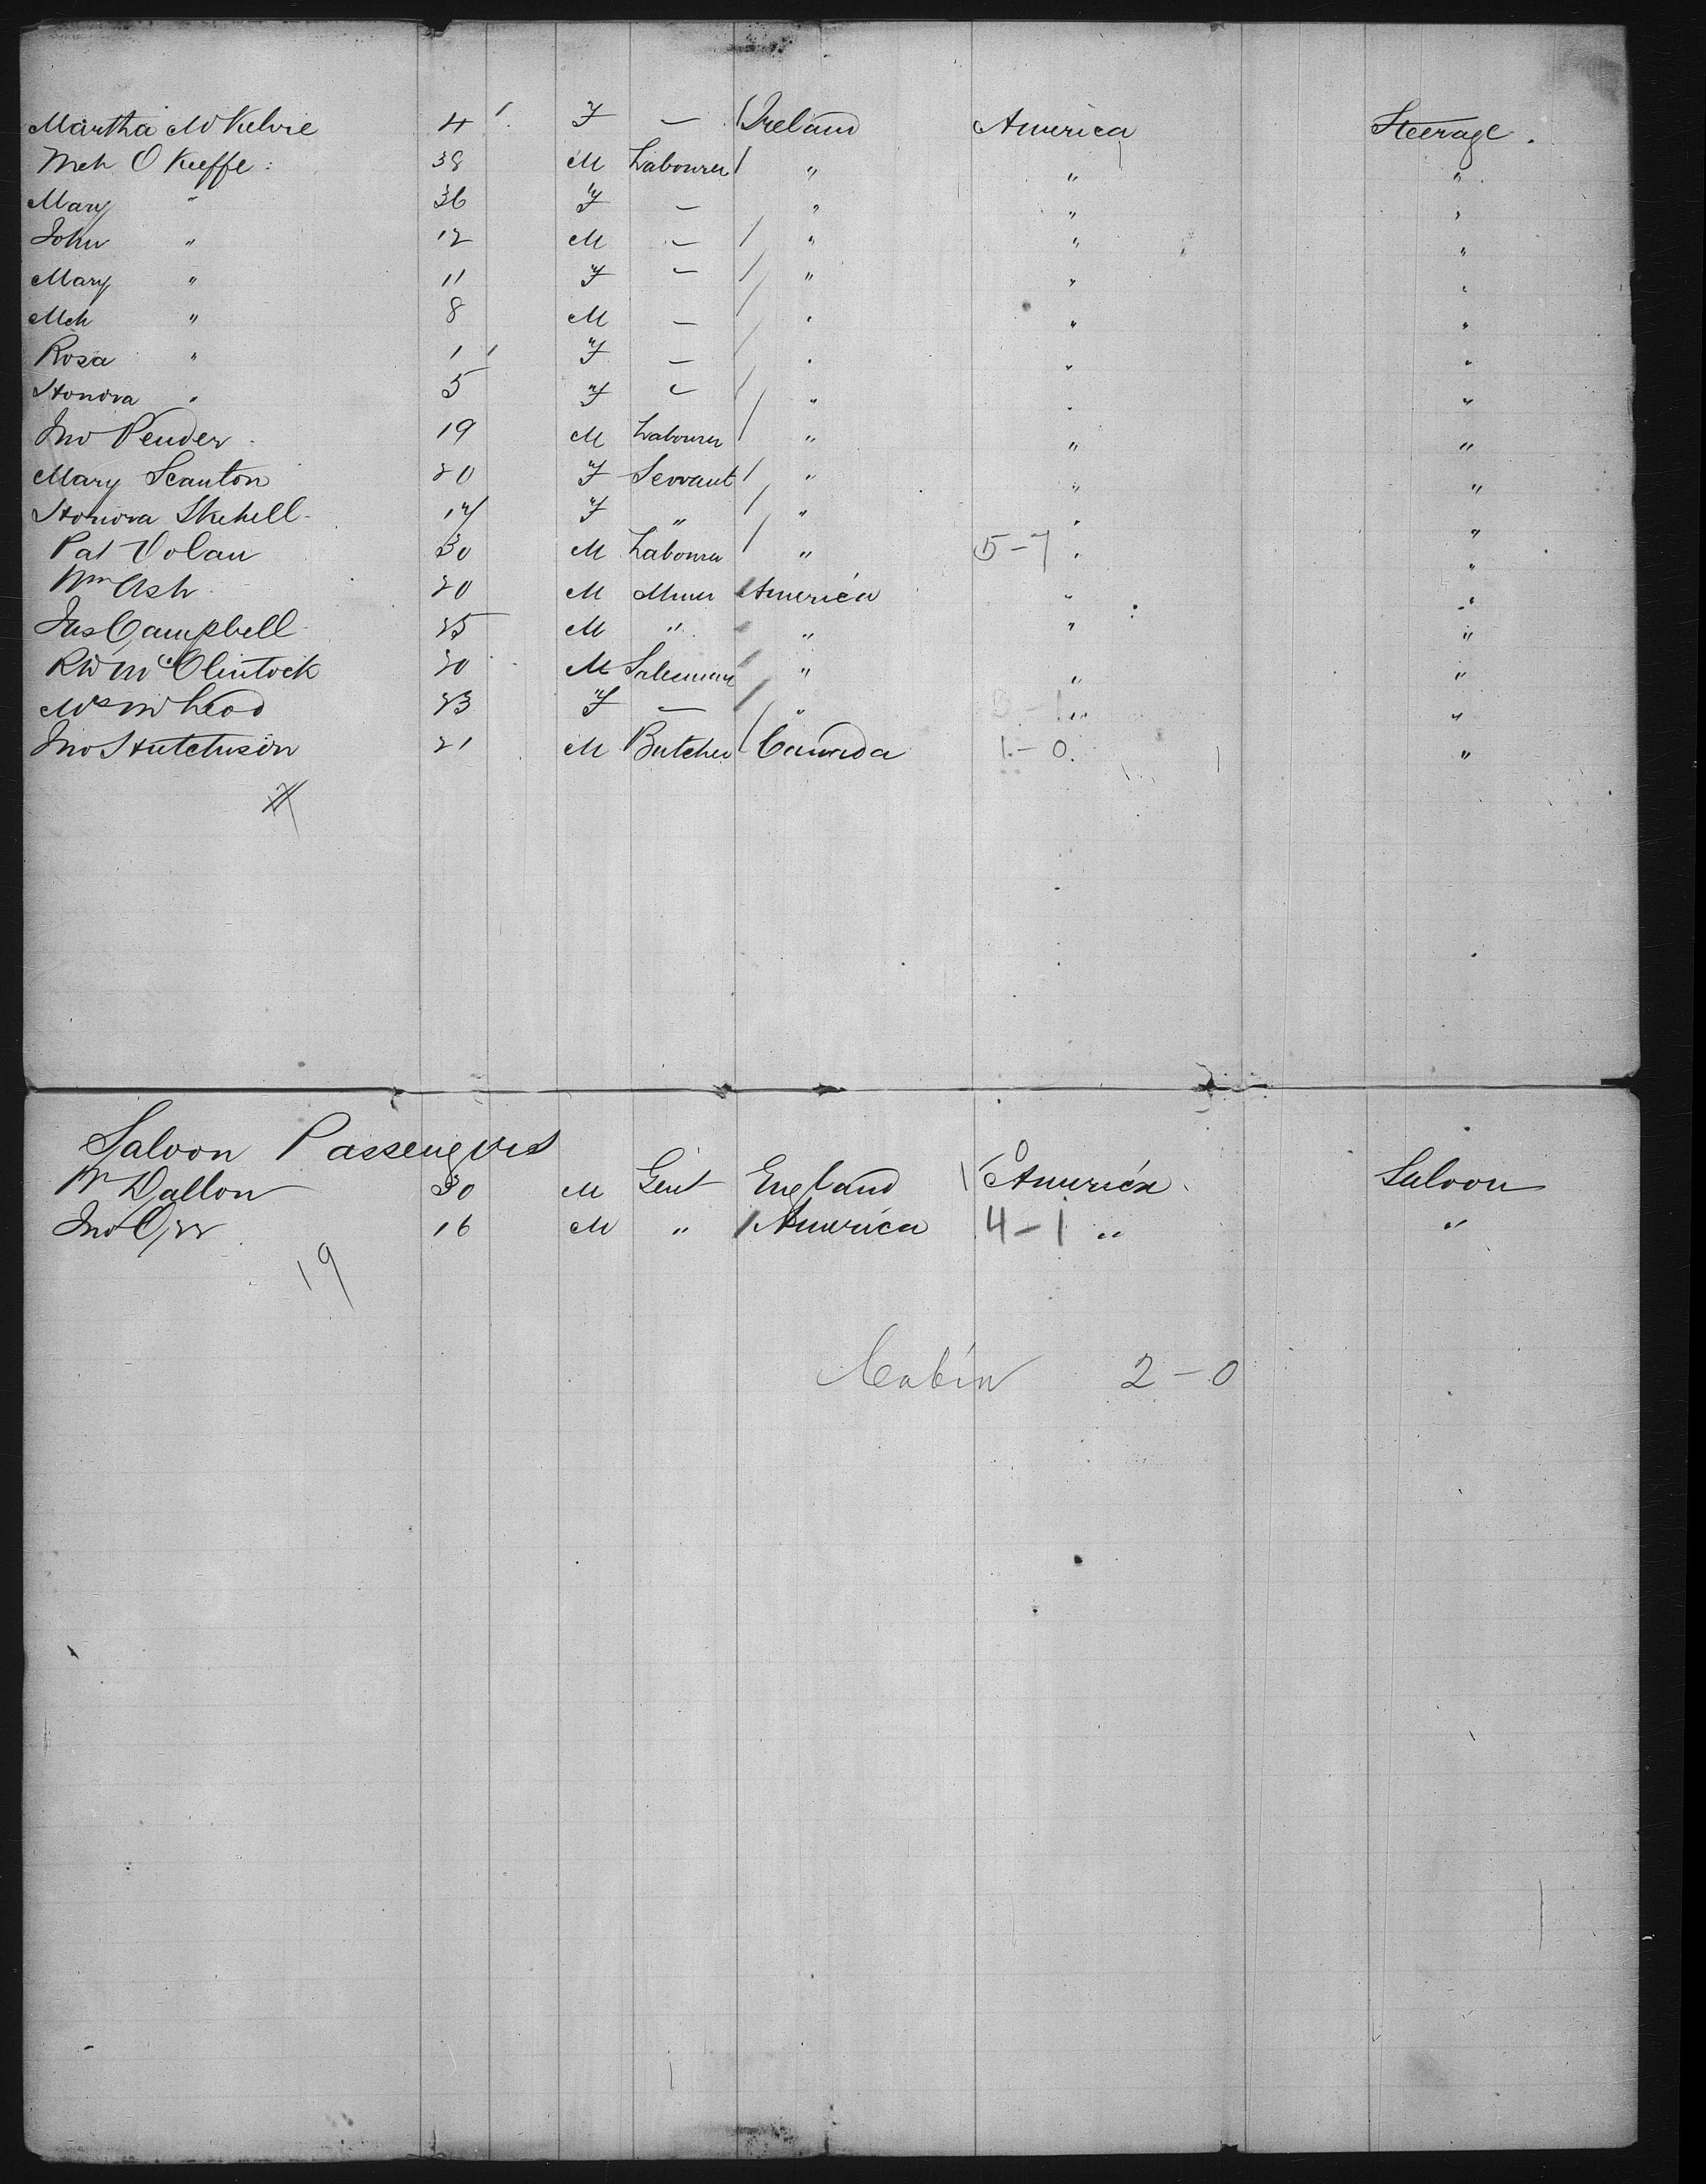 Martha McKelvie 4 F — Ireland America Steerage.
Mch O Keeffe 38 M Labourer " " "
Mary " 36 F — " " "
John " 12 M — " " "
Mary " 11 F — " " "
Mch " 8 M — " " "
Rosa " 1 F — " " "
Honora " 5 F — " " "
Jno Pender 19 M Labourer " " "
Mary Scanton 20 F Servant " " "
Honora Skehell 17 F " " " "
Pat Dolan 30 M Labourer " 5-7 " "
Wm Ash 20 M Miner America " "
Jas Campbell 25 M " " " "
RW McClintock 30 M Salesman " " "
Mrs McLeod 23 F — " " "
Jno Hutchison 21 M Butcher Canada 1-0. "
Saloon Passengers
W Dalton 30 M Gent England America Saloon
Jno Orr 16 M " America 4-1 " "
19
Cabin 2-0